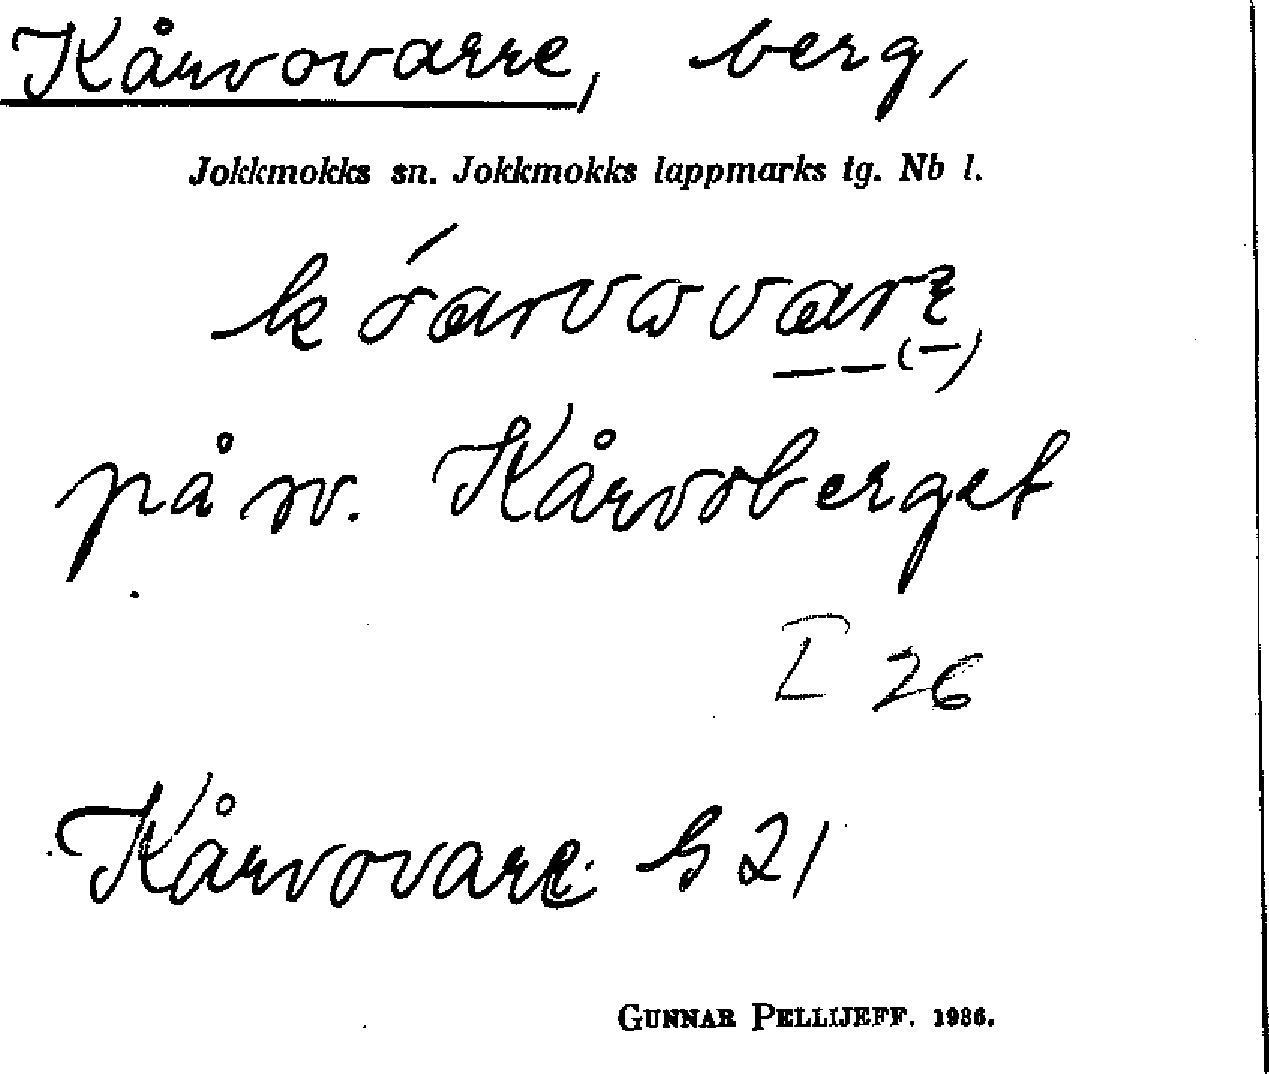 Kårvovarre, berg,
Jokkmokks sn. Jokkmokks lappmarks tg. Nb l.
på sv. Kårvoberget
I 26
Kårvovare h 21
GUNNAR PELLIJEFF. 1936.